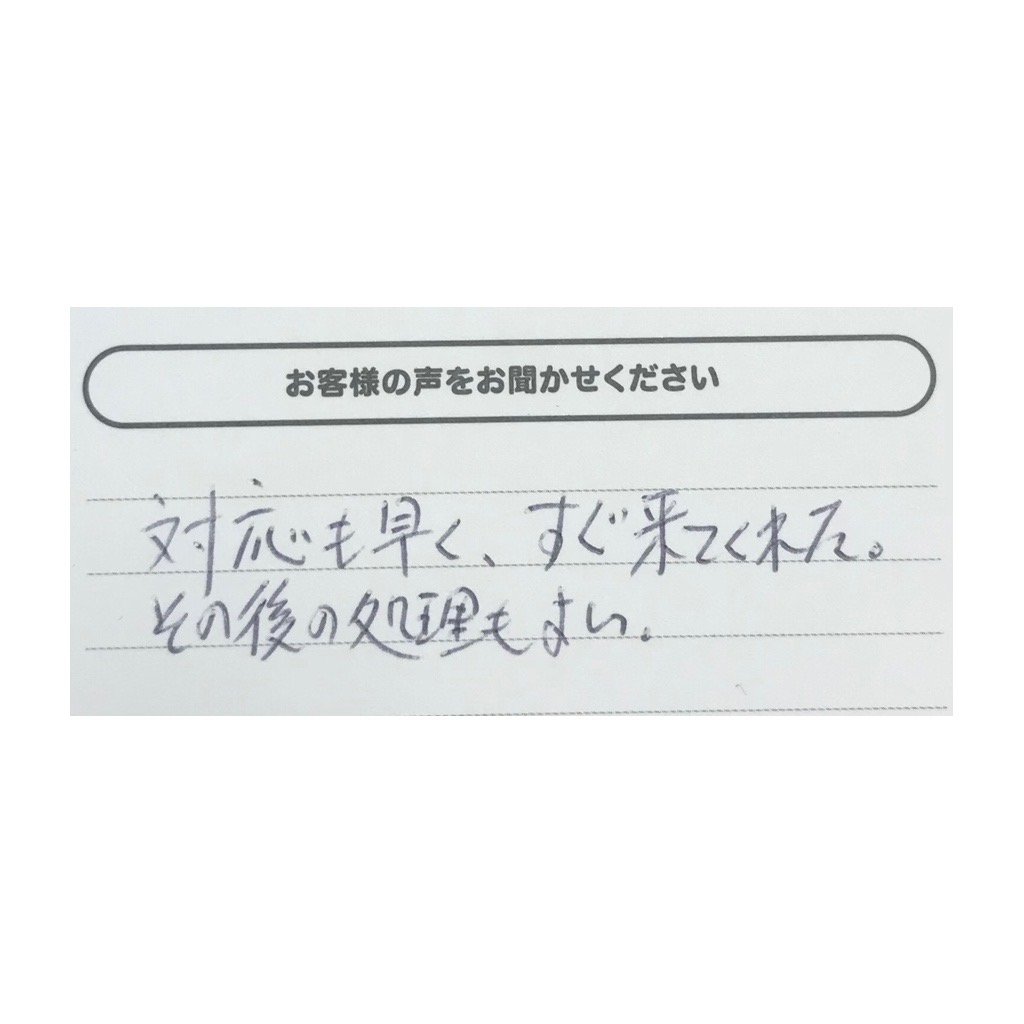 お客様の声をお聞かせください
対応も早く、すぐ来てくれた。
その後の処理もよい。